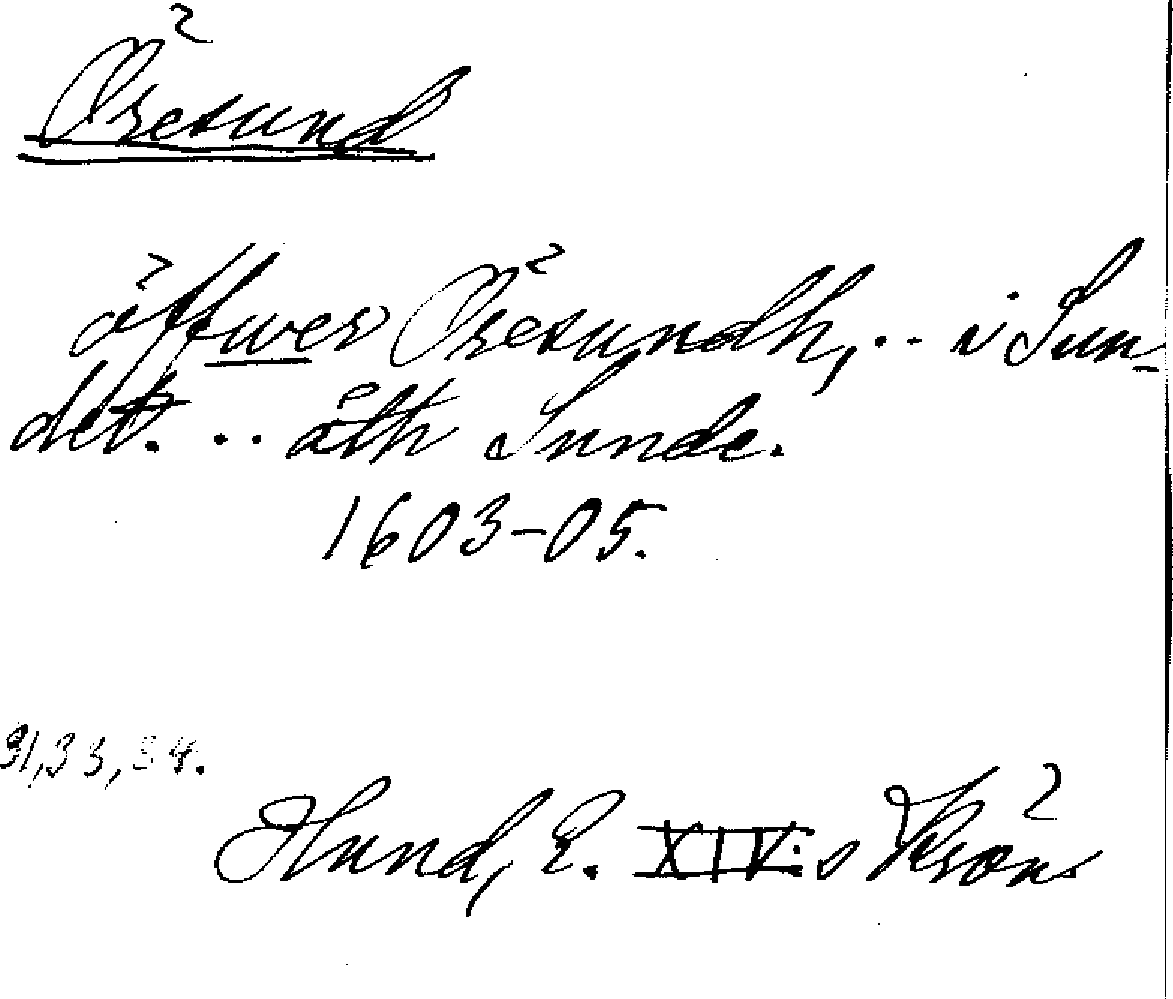 Öresund
öffwer Öresundh, .. i Sun-
det. .. åth Sunde.
1603-05.
31, 33, 34.
Hund, E. XIV:s Krön.